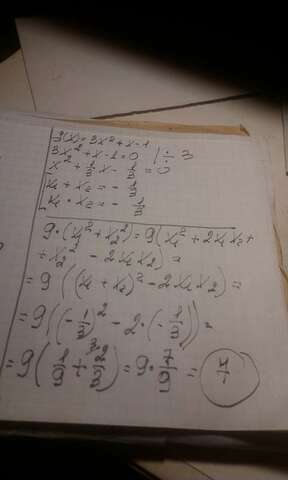 g(x)=3x²+x-1
3x²+x-1=0 | ÷ 3
x² + 1/3 x - 1/3 = 0
x₁ + x₂ = - 1/3
x₁ · x₂ = - 1/3
9·(x₁²+x₂²)=9(x₁²+2x₁x₂+
+x₂²-2x₁x₂)=
=9((x₁+x₂)²-2x₁x₂)=
=9((-1/3)²-2·(-1/3))=
=9(1/9+2/3)=9·7/9=7